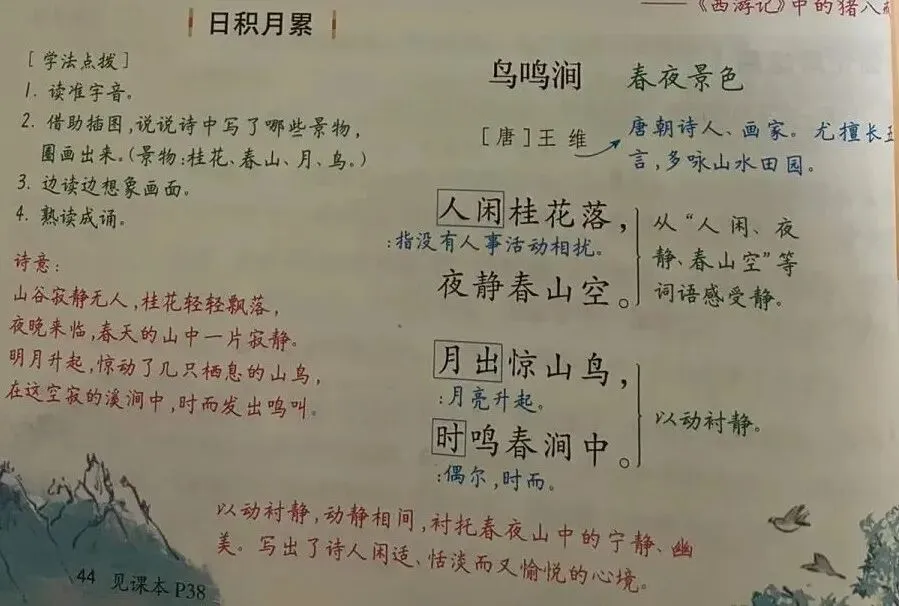 ——《西游记》中的猪八
日积月累
[学法点拨]
1. 读准字音。
2. 借助插图,说说诗中写了哪些景物,
圈画出来。(景物:桂花、春山、月、鸟。)
3. 边读边想象画面。
4. 熟读成诵。
诗意:
山谷寂静无人,桂花轻轻飘落,
夜晚来临,春天的山中一片寂静。
明月升起,惊动了几只栖息的山鸟,
在这空寂的溪涧中,时而发出鸣叫。
鸟鸣涧 春夜景色
[唐]王维
唐朝诗人、画家。尤擅长五
言,多咏山水田园。
人闲桂花落,
:指没有人事活动相扰。
夜静春山空。
从“人闲、夜
静、春山空”等
词语感受静。
月出惊山鸟,
:月亮升起。
时鸣春涧中。
:偶尔,时而。
以动衬静。
以动衬静,动静相间,衬托春夜山中的宁静、幽
美。写出了诗人闲适、恬淡而又愉悦的心境。
44 见课本 P38